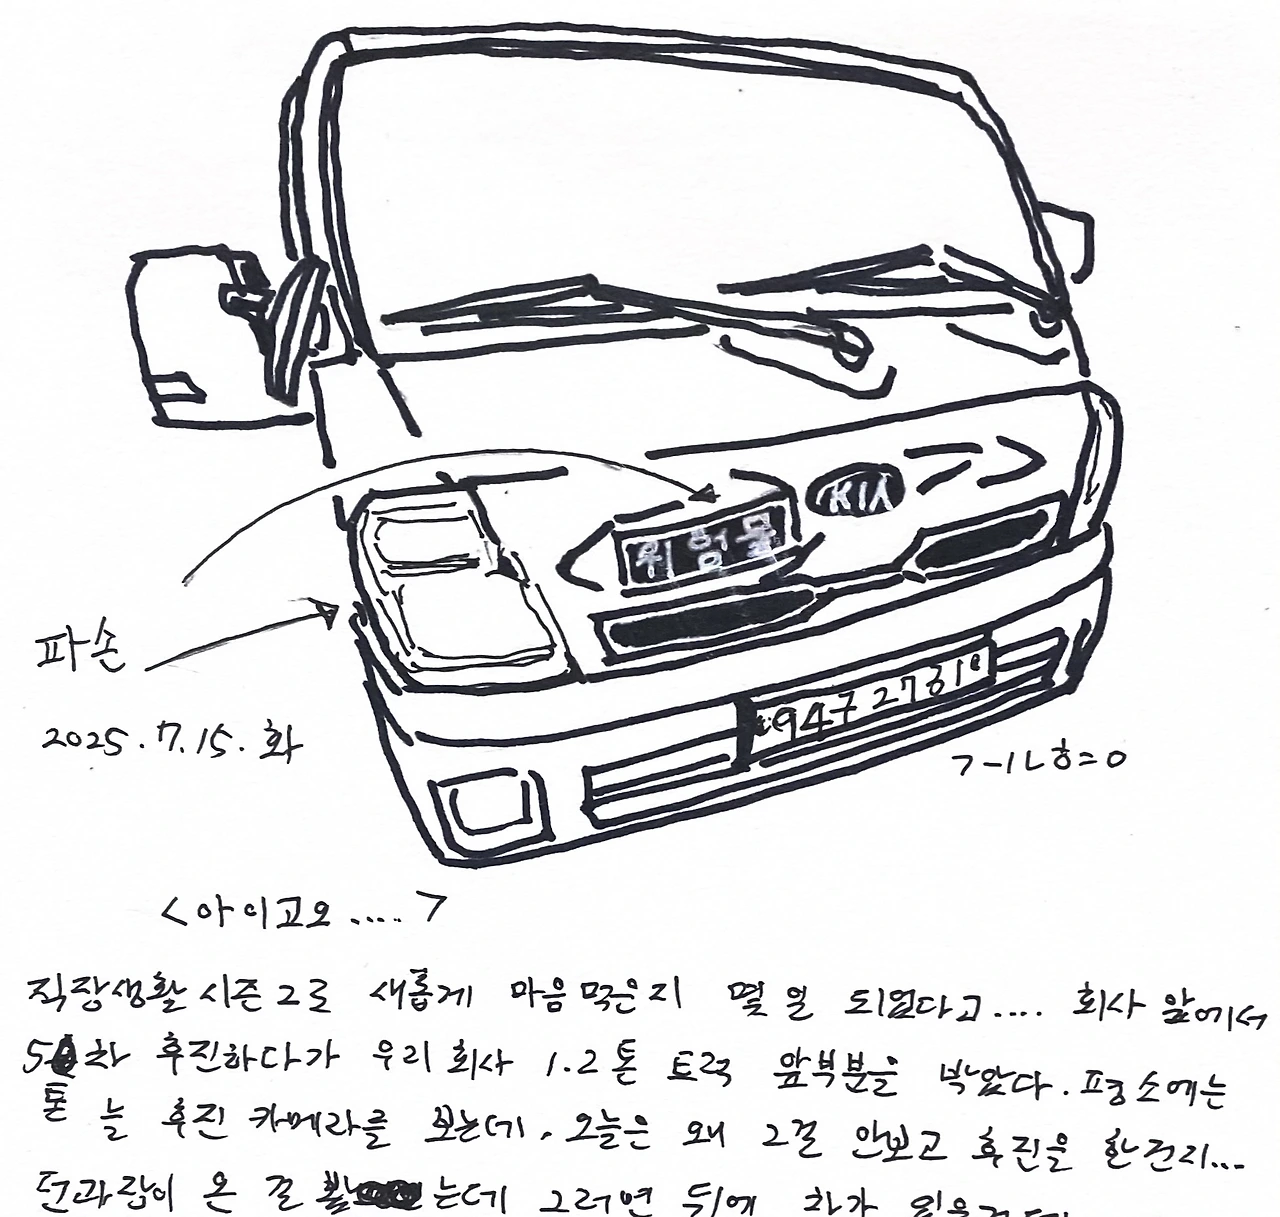 KIA
위험물
파손
947 2731
2025.7.15.화
ㄱㅡㅣㄴㅎ=ㅇ
<아이고오....>
직장생활 시즌2로 새롭게 마음먹은지 몇 일 되었다고.... 회사 앞에서
5톤차 후진하다가 우리회사 1.2톤 트럭 앞부분을 박았다. 평소에는
늘 후진 카메라를 보는데, 오늘은 왜 그걸 안보고 후진을 한건지...
는데 그러면 뒤에 차가